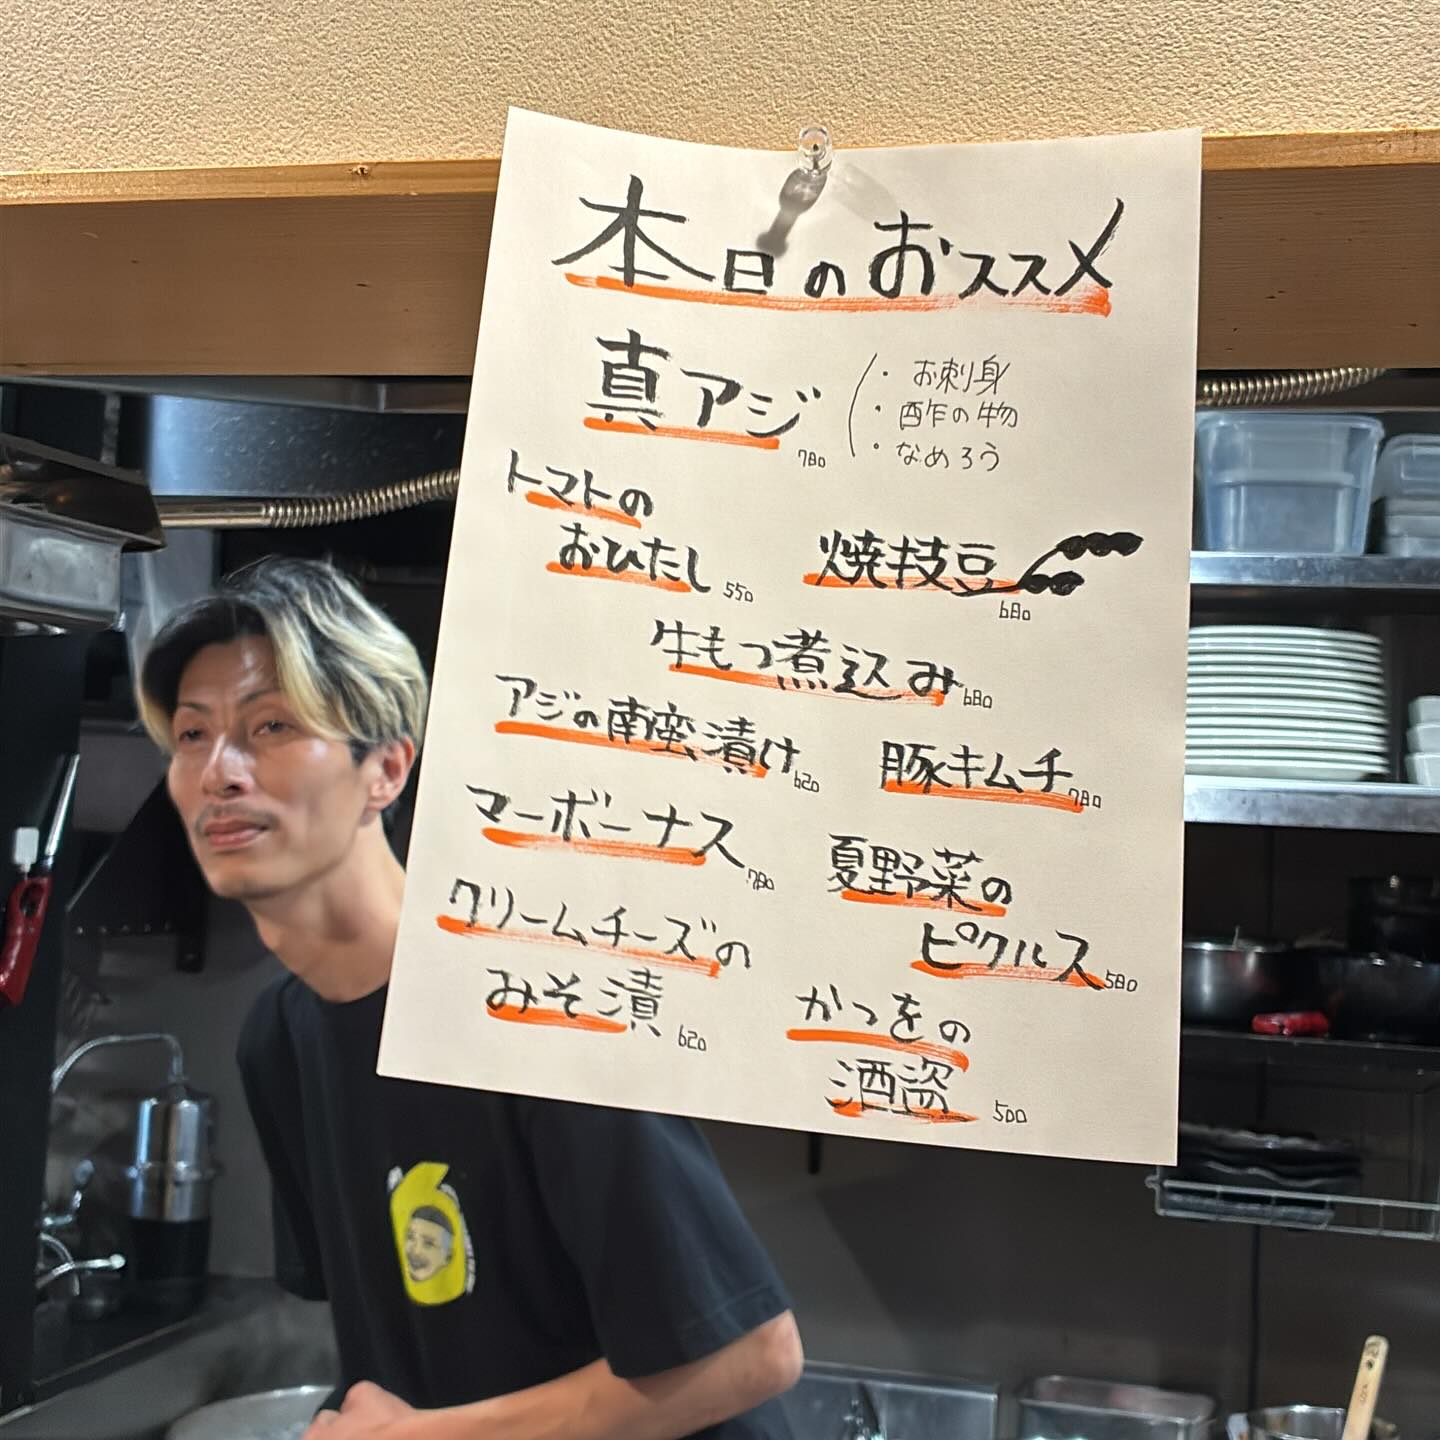 本日のおススメ
真アジ 780
・お刺身
・酢の物
・なめろう
トマトの
おひたし 550
焼枝豆 680
牛もつ煮込み 680
アジの南蛮漬け 620
豚キムチ 780
マーボーナス 780
夏野菜の
ピクルス 580
クリームチーズの
みそ漬 620
かつをの
酒盗 500